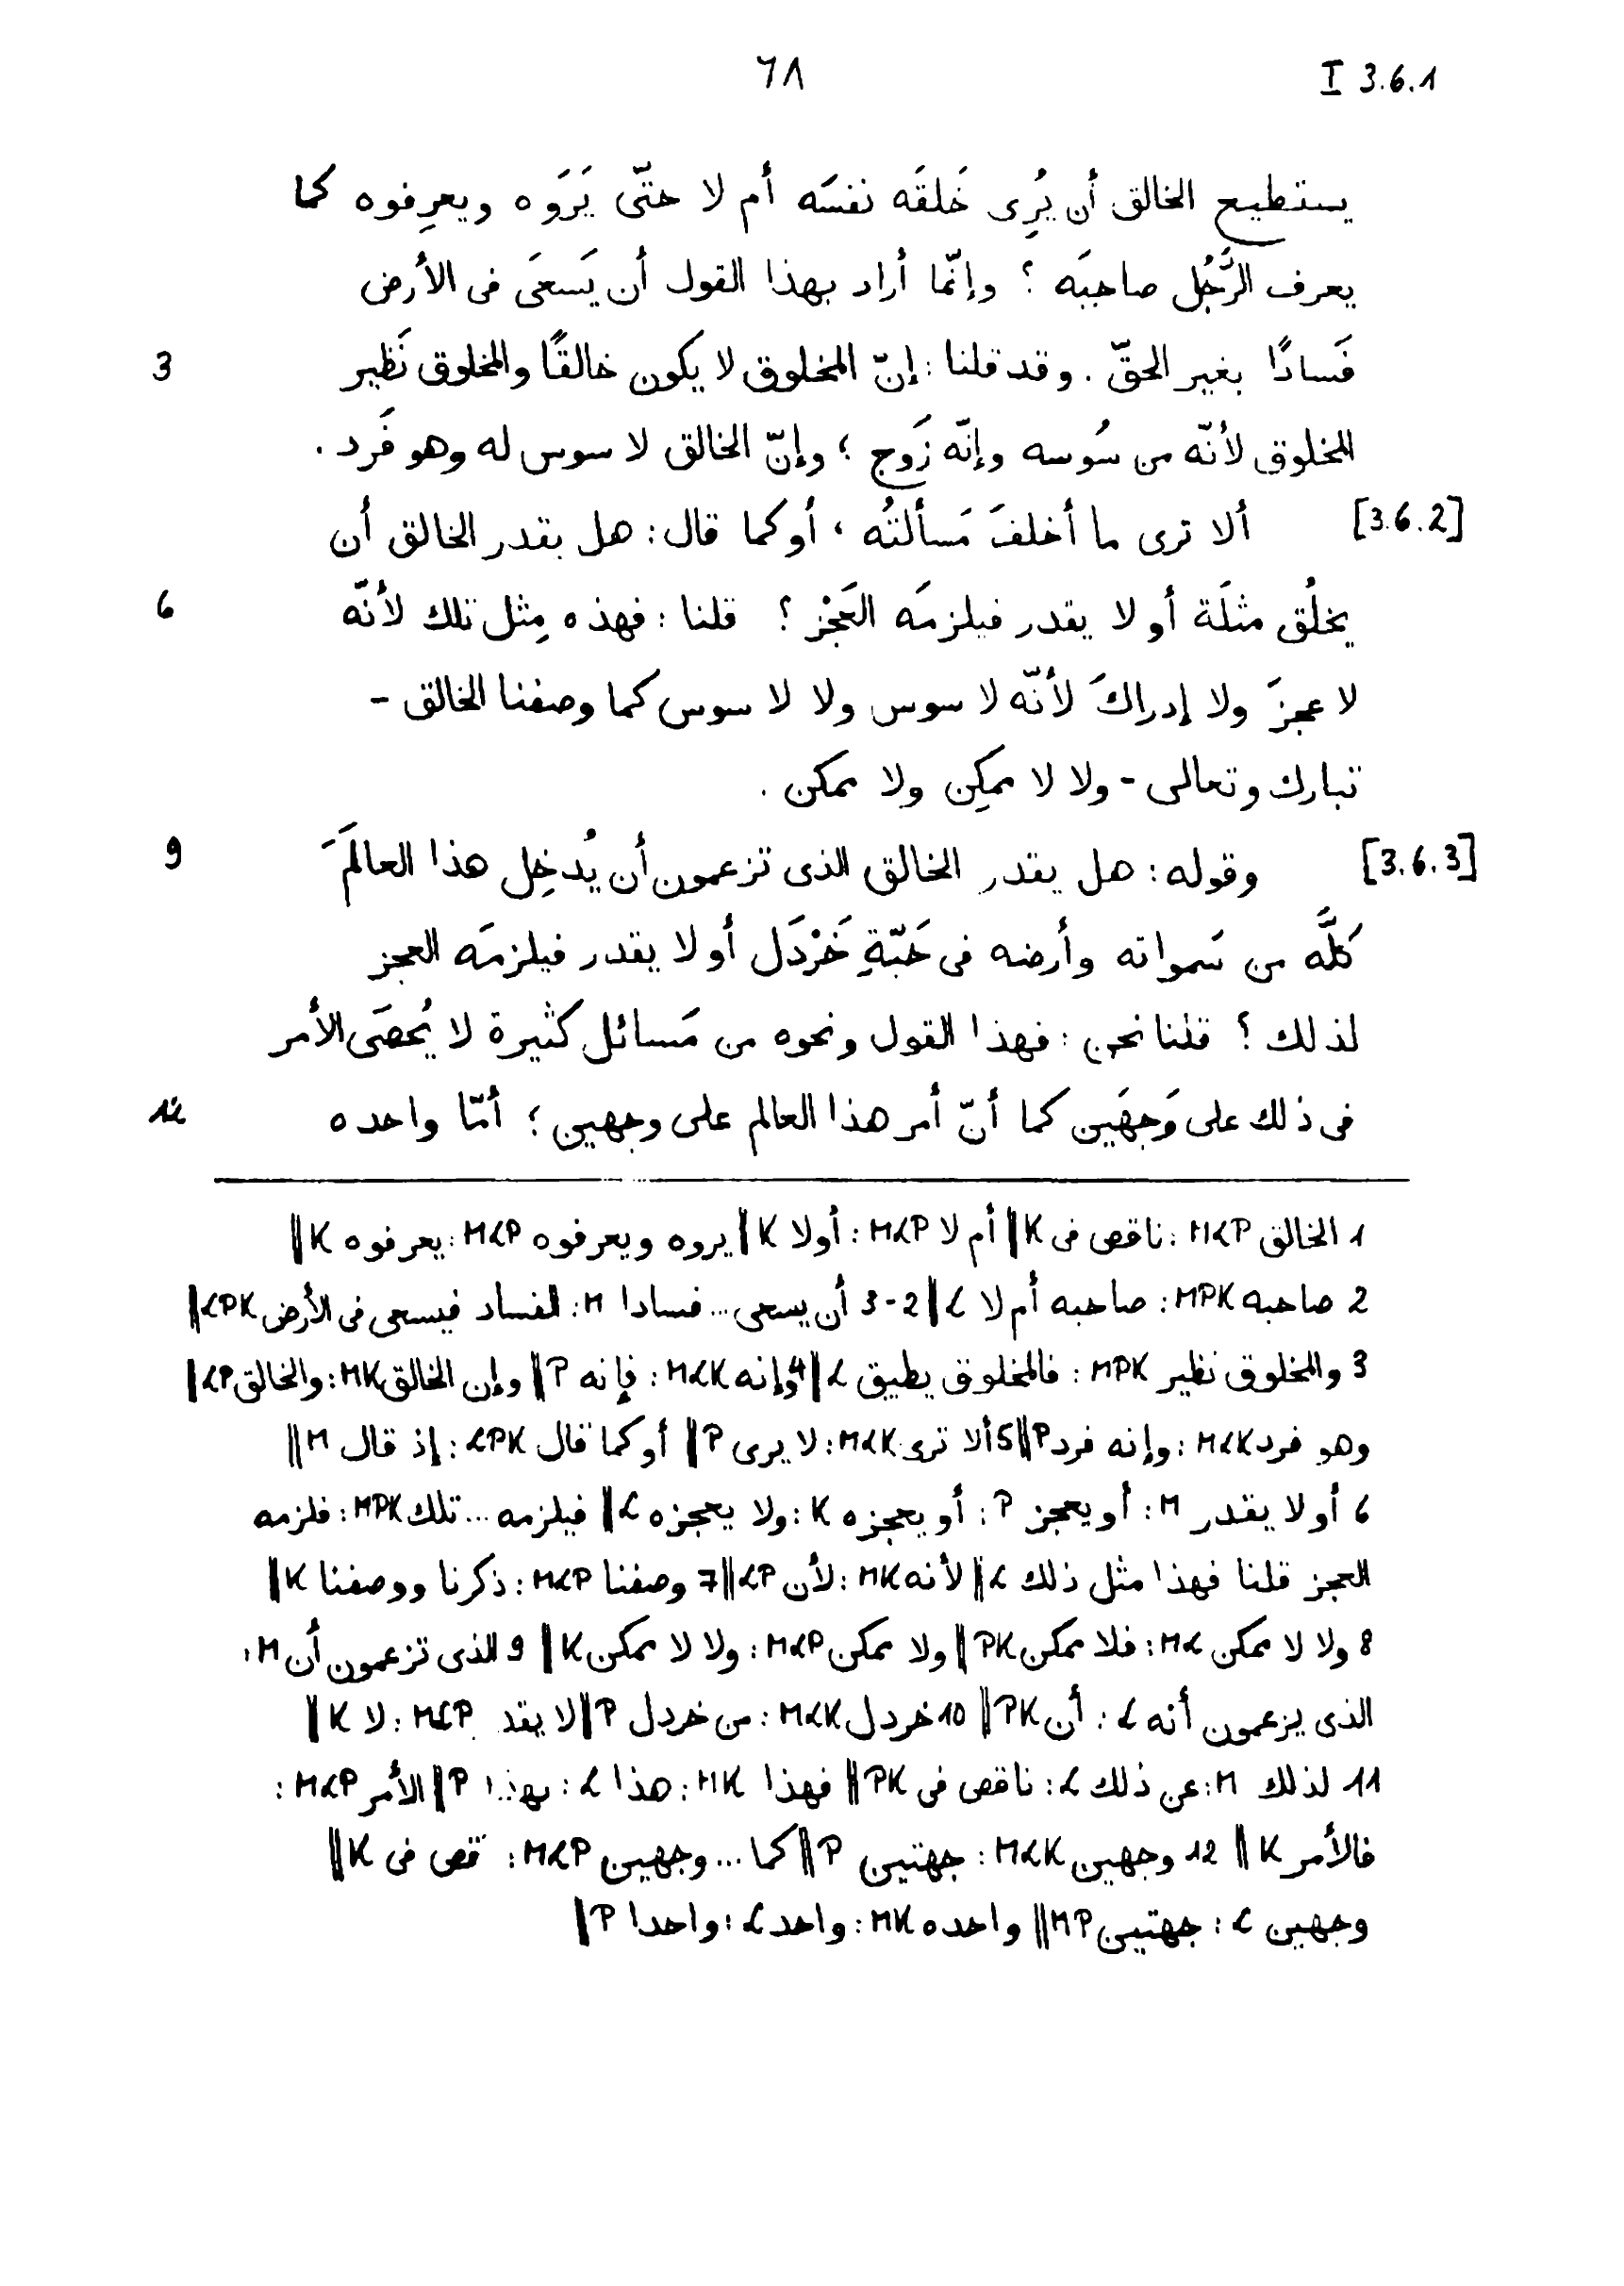 ٦٨ I 3.6.1
يستطيع الخالق أن يُرِى خَلقَه نفسَه أم لا حتّى يَرَوه ويعرِفوه كما
يعرف الرَّجُل صاحبَه ؟ وإنّما أراد بهذا القول أن يَسعَى فى الأرض
3 فَسادًا بغير الحقّ . وقد قلنا : إنّ المخلوق لا يكون خالقًا والمخلوق نَظير
المخلوق لأنّه من سُوسه وإنّه زَوج ؛ وإنّ الخالق لا سوس له وهو فَرد .
[3.6.2] ألا ترى ما أخلفَ مَسألتُه ، أو كما قال : هل يقدر الخالق أن
6 يخلُق مثلَة أو لا يقدر فيلزمَه العَجْز ؟ قلنا : فهذه مِثل تلك لأنّه
لا عجزَ ولا إدراكَ لأنّه لا سوس ولا لا سوس كما وصفنا الخالق -
تبارك وتعالى - ولا لا ممكِن ولا ممكن .
[3.6.3] 9 وقوله : هل يقدر الخالق الذى تزعمون أن يُدخِل هذا العالمَ
كلَّه من سَمواته وأرضه فى حَبّةِ خَرْدَل أو لا يقدر فيلزمَه العجز
لذلك ؟ قلنا نحن : فهذا القول ونحوه من مَسائل كثيرة لا يُحصَى الأمر
12 فى ذلك على وَجهَين كما أنّ أمر هذا العالم على وجهين ؛ أمّا واحده
1 الخالق MLP : ناقص فى K || أم لا MLP : أولا K || يروه ويعرفوه MLP : يعرفوه K ||
2 صاحبه MPK : صاحبه أم لا L || 2-3 أن يسعى ... فسادا M : لفساد فيسعى فى الأرض LPK ||
3 والمخلوق نظير MPK : فالمخلوق يطيق L || 4 وإنه MLK : فإنه P || وإن الخالق MK : والخالق LP ||
وهو فرد MLK : وإنه فرد P || 5 ألا ترى MLK : لا يرى P || أو كما قال LPK : إذ قال M ||
6 أو لا يقدر M : أو يعجز P : أو يعجزه K : ولا يعجزه L || فيلزمه ... تلك MPK : فلزمه
العجز قلنا فهذا مثل ذلك L || لأنه MK : لأن LP || 7 وصفنا MLP : ذكرنا ووصفنا K ||
8 ولا لا ممكن ML : فلا ممكن PK || ولا ممكن MLP : ولا لا ممكن K || 9 الذى تزعمون أن M :
الذى يزعمون أنه L : أن PK || 10 خردل MLK : من خردل P || لا يقد MLP : لا K ||
11 لذلك M : عن ذلك L : ناقص فى PK || فهذا MK : هذا L : بهذا P || الأمر MLP :
فالأمر K || 12 وجهين MLK : جهتين P || كما ... وجهين MLP : قص فى K ||
وجهين L : جهتين MP || واحده MK : واحد L : واحدا P ||